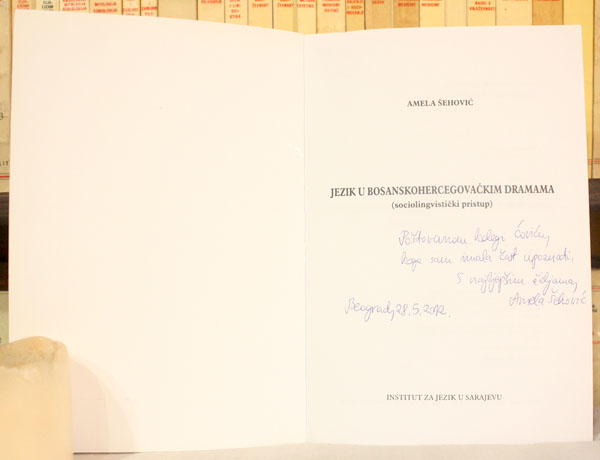 AMELA ŠEHOVIĆ
JEZIK U BOSANSKOHERCEGOVAČKIM DRAMAMA
(sociolingvistički pristup)
Poštovanom kolegi Čoviću,
koga sam imala čast upoznati,
S najljepšim željama,
Amela Šehović
Beograd, 28. 5. 2012.
INSTITUT ZA JEZIK U SARAJEVU